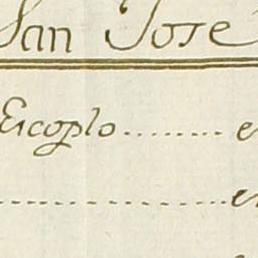 San Jose
Escoplo......... e
................. e